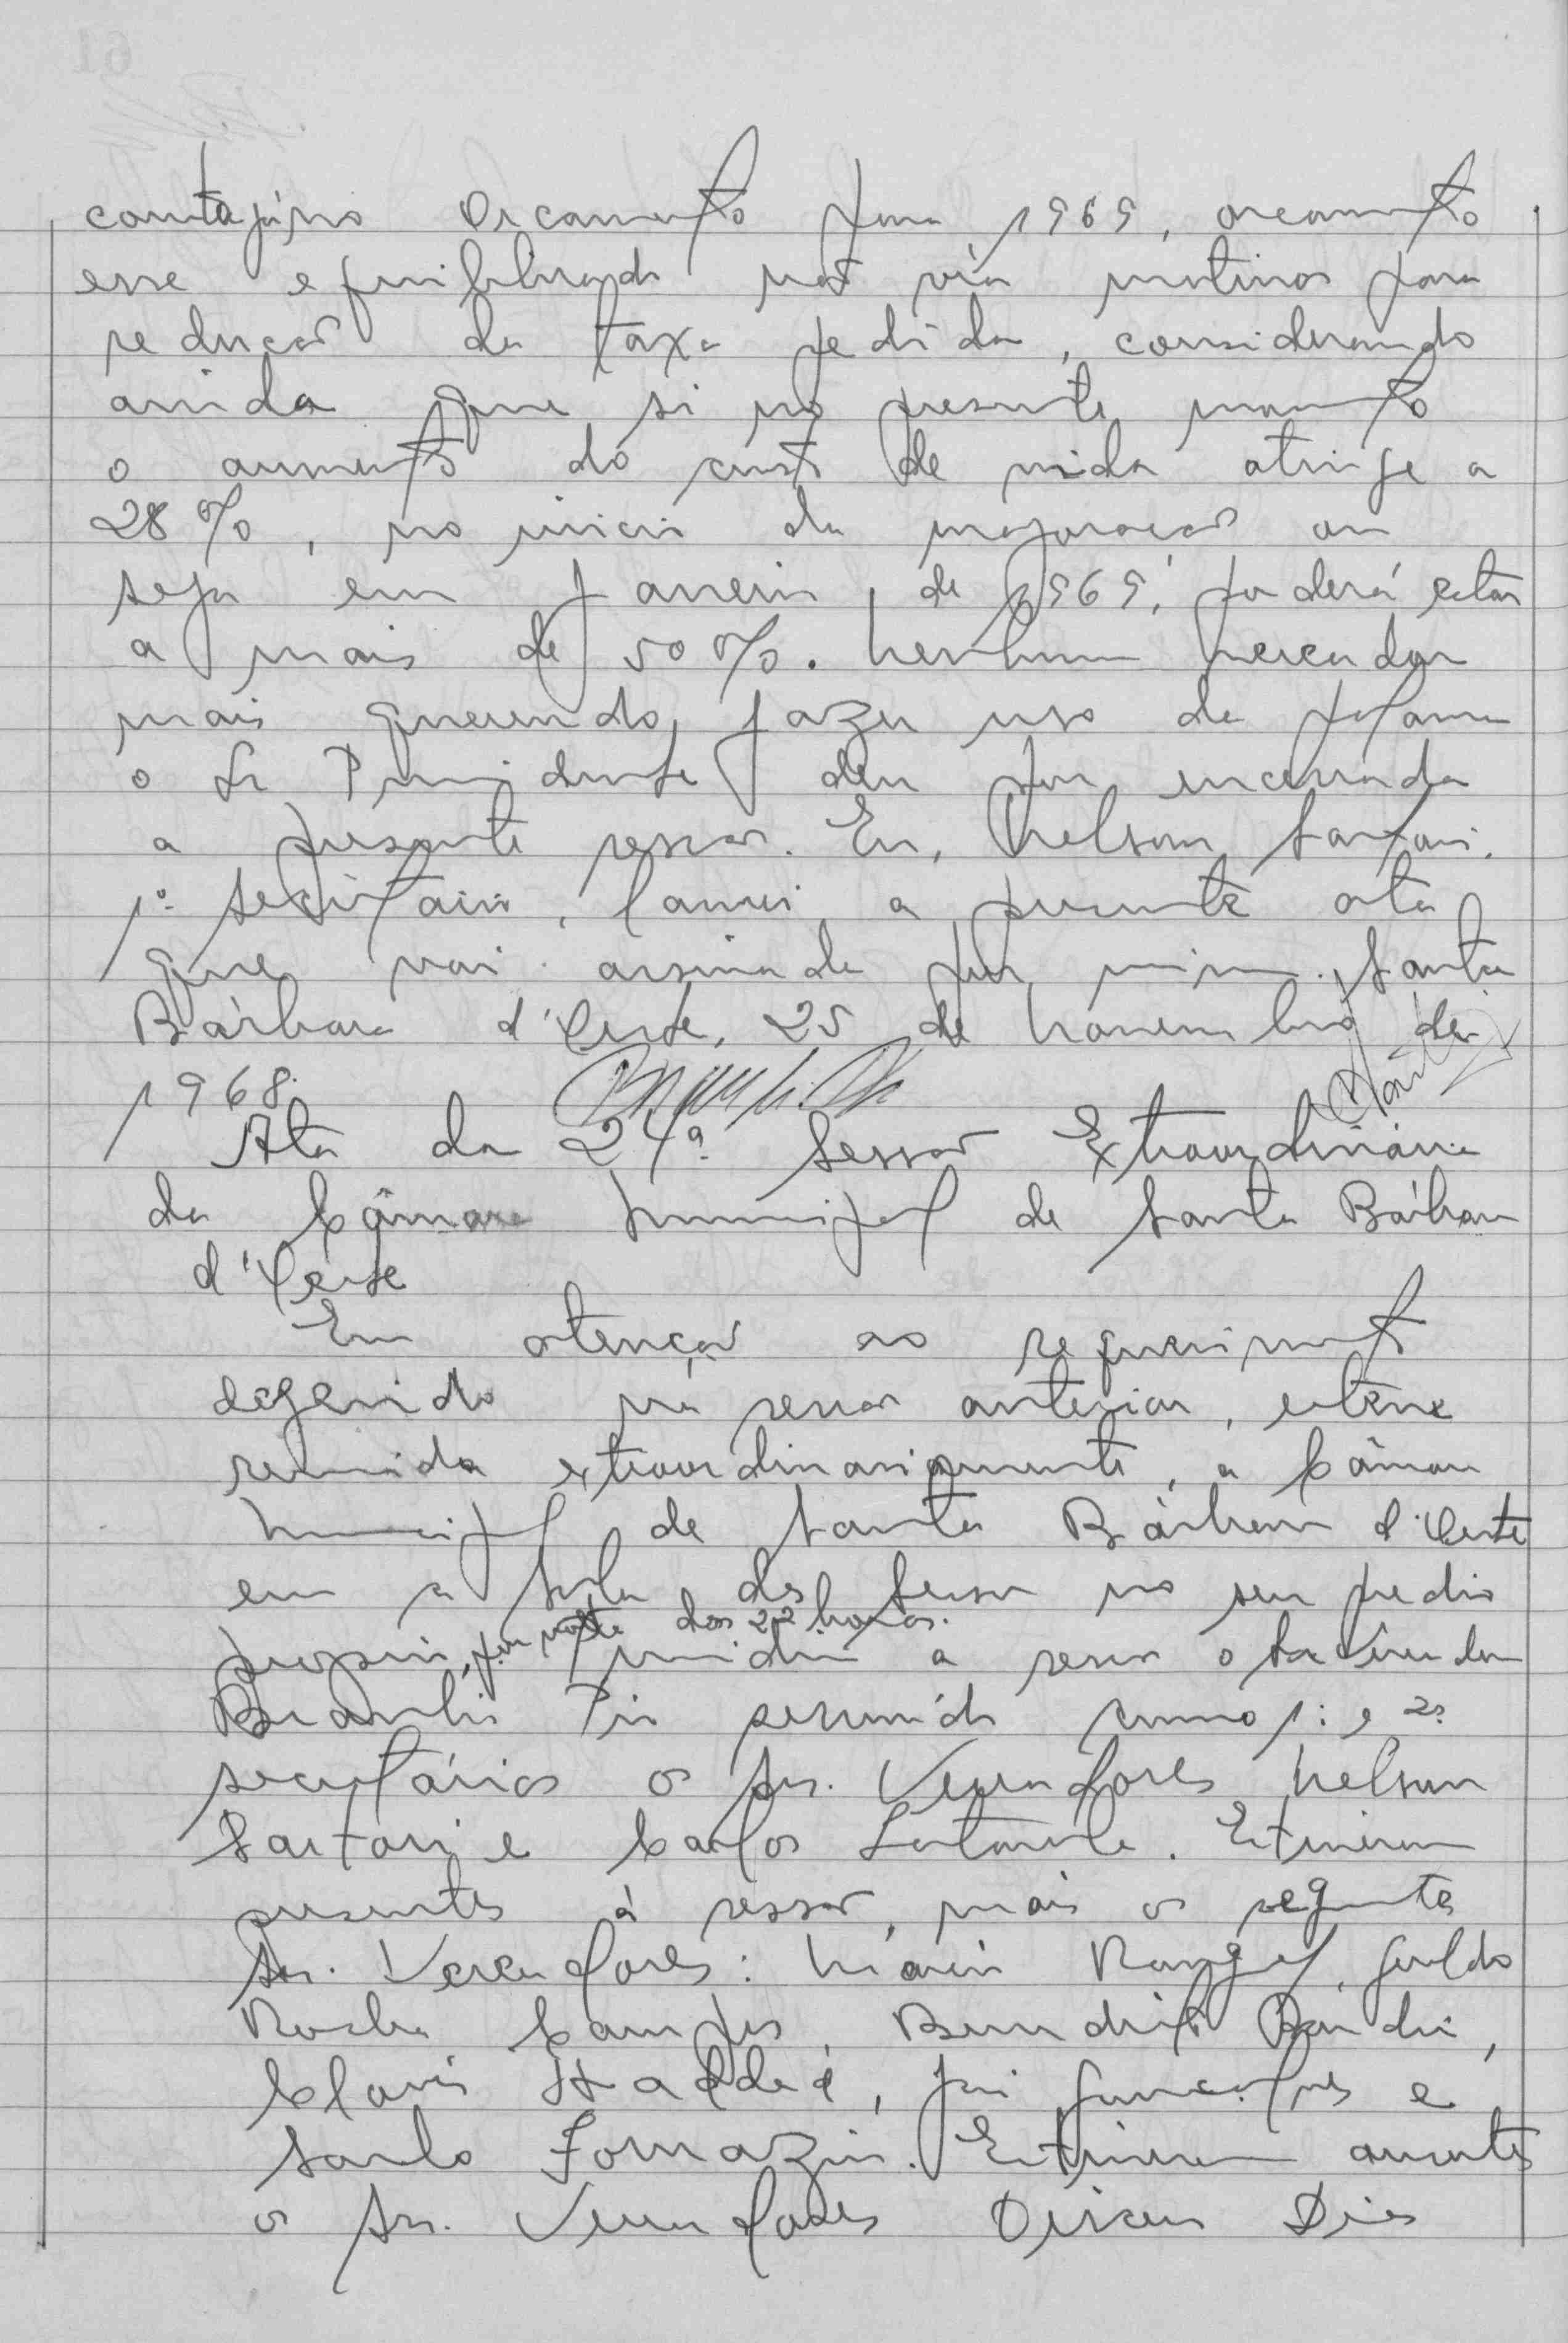 Orçamento para 1969, orçamento
esse equilibrado não via motivos para
redução da taxa pedida, considerando
ainda que si no presente momento
o aumento do custo de vida atinge a
28%, no inicio da majoração ou
seja em Janeiro de 1969, poderá estar
a mais de 50%. Nenhum Vereador
mais querendo fazer uso da palavra
o Sr Presidente deu por encerrada
a presente sessão. Eu, Nelson Sartori,
1º Secretario, lavrei a presente ata
que vai assinada por mim. Santa
Bárbara d'Oeste, 25 de Novembro de
1968.
Ata da 24ª Sessão Extraordinária
da Câmara Municipal de Santa Bárbara
d'Oeste
Em atenção ao requerimento
deferido na sessão anterior, esteve
reunida extraordinariamente, a Câmara
Municipal de Santa Bárbara d'Oeste
em a Sala das Sessões no seu predio
proprio, por volta das 22 horas. Presidiu a sessão o Sr Vereador
Braulio Pio secundado como 1º e 2º
secretários os Srs. Vereadores Nelson
Sartori e Carlos. Estiveram
presentes à sessão, mais os seguintes
Srs. Vereadores: Mário Rangel, Geraldo
Rocha Campos, Benedito,
Clovis Haddad, José Gonçalves e
Santo Fornazin. Estiveram ausentes
os Srs. Vereadores Dirceu Dias